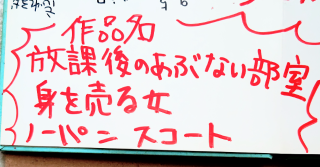 作品名
放課後のあぶない部室
身を売る女
ノーパン スコート